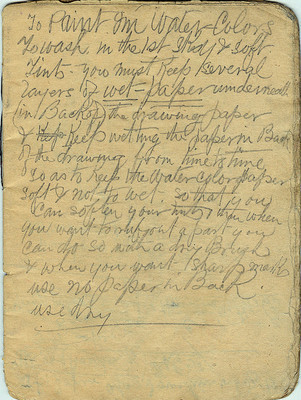 To Paint In Water-Colors
To wash in the 1st Incld & soft
Tint - you must Keep several
Layers of wet-paper underneath
(in Back of) the drawing paper
& Keep wetting the paper in Back
of the drawing from time to time
so as to Keep the Water color paper
soft & not to wet. so that you
can soften your tints & then when
you want to rub out a part you
can do so with a dry Brush
& when you want sharp marks
use no paper in Back.
use dry